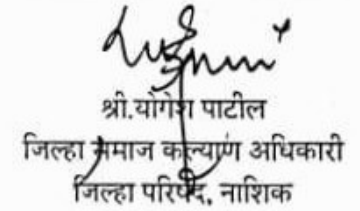 श्री.योगेश पाटील
जिल्हा समाज कल्याण अधिकारी
जिल्हा परिषद, नाशिक